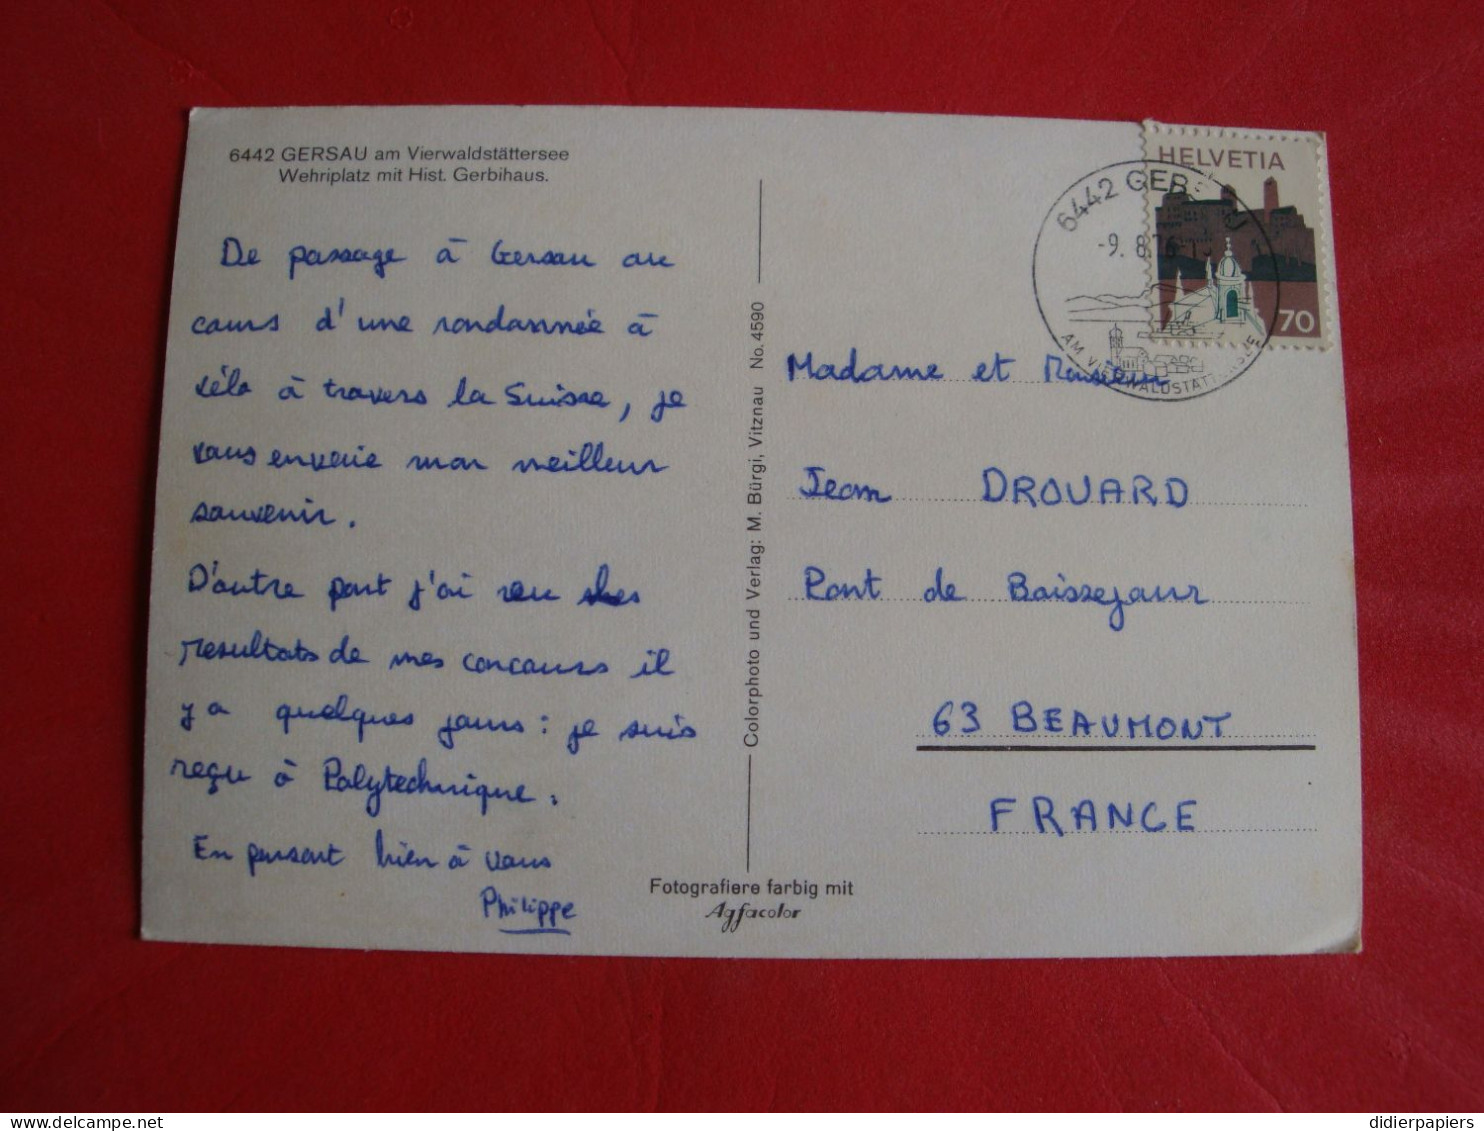 6442 GERSAU am Vierwaldstättersee
Wehriplatz mit Hist. Gerbihaus.
De passage à Gersau au
cours d'une randonnée à
vélo à travers la Suisse, je
vous envoie mon meilleur
souvenir.
D'autre part j'ai eu les
resultats de mes concours il
y a quelques jours : je suis
reçu à Polytechnique.
En pensant bien à vous
Philippe
Colorphoto und Verlag: M. Bürgi, Vitznau No. 4590
Fotografiere farbig mit
Agfacolor
HELVETIA
70
6442 GERSAU
-9. 8. 76
AM VIERWALDSTÄTTERSEE
Madame et Monsieur
Jean DROUARD
Pont de Boissejour
63 BEAUMONT
FRANCE
delcampe.net
didierpapiers